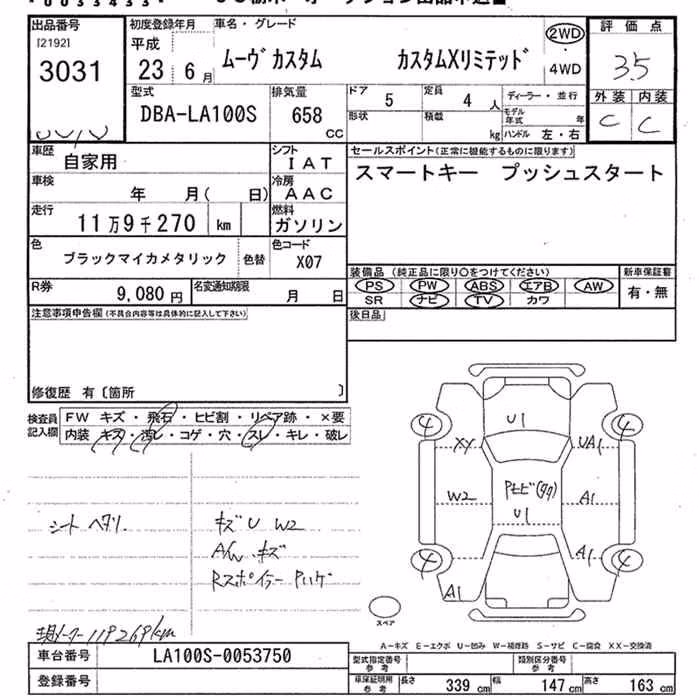 出品番号 初度登録年月 車名・グレード 2WD 評価点
[2192]
3031 平成 23 6月 ムーヴ カスタム カスタムXリミテッド 4WD 3.5
型式 排気量 ドア 5 定員 4人 ディーラー・並行 外装 内装
DBA-LA100S 658 CC 形状 積載 kg モデル年式 年 ハンドル 左・右 C C
車歴 自家用 シフト IAT セールスポイント(正常に機能するものに限ります)
車検 年 月( 日) 冷房 AAC スマートキー プッシュスタート
走行 11万9千270 km 燃料 ガソリン
色 ブラックマイカメタリック 色替 色コード X07
装備品 (純正品に限り○をつけてください) 新車保証書
R券 9,080円 名変通知期限 月 日 PS PW ABS エアB AW 有・無
SR ナビ TV カワ
注意事項申告欄(不具合内容等は具体的に記入して下さい) 後日品
修復歴 有〔箇所 〕
検査員記入欄 FW キズ・飛石・ヒビ割・リペア跡・×要
内装 キズ・汚レ・コゲ・穴・スレ・キレ・破レ
シート ヘタリ キズU W2
A/W キズ
Rスポイラー Pハゲ
現メーター 119269km
4 U1 4
XY UA1
W2 PモヒP(タタ) A1
U1
4 A1 4
A1
スペア
A-キズ E-エクボ U-凹み W-補修跡 S-サビ C-腐食 XX-交換済
車台番号 LA100S-0053750 型式指定番号 参考 類別区分番号 参考
登録番号 車庫証明用 参考 長さ 339 cm 幅 147 cm 高さ 163 cm